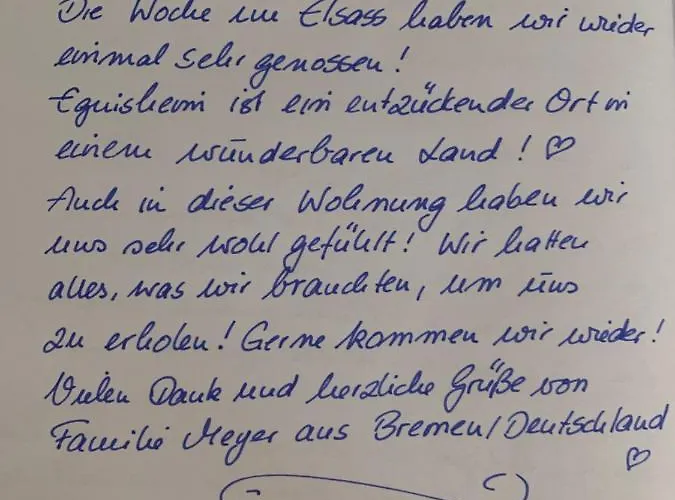 Die Woche im Elsass haben wir wieder
einmal sehr genossen!
Eguisheim ist ein entzückender Ort in
einem wunderbaren Land! ♡
Auch in dieser Wohnung haben wir
uns sehr wohl gefühlt! Wir hatten
alles, was wir brauchten, um uns
zu erholen! Gerne kommen wir wieder!
Vielen Dank und herzliche Grüße von
Familie Meyer aus Bremen/Deutschland
♡